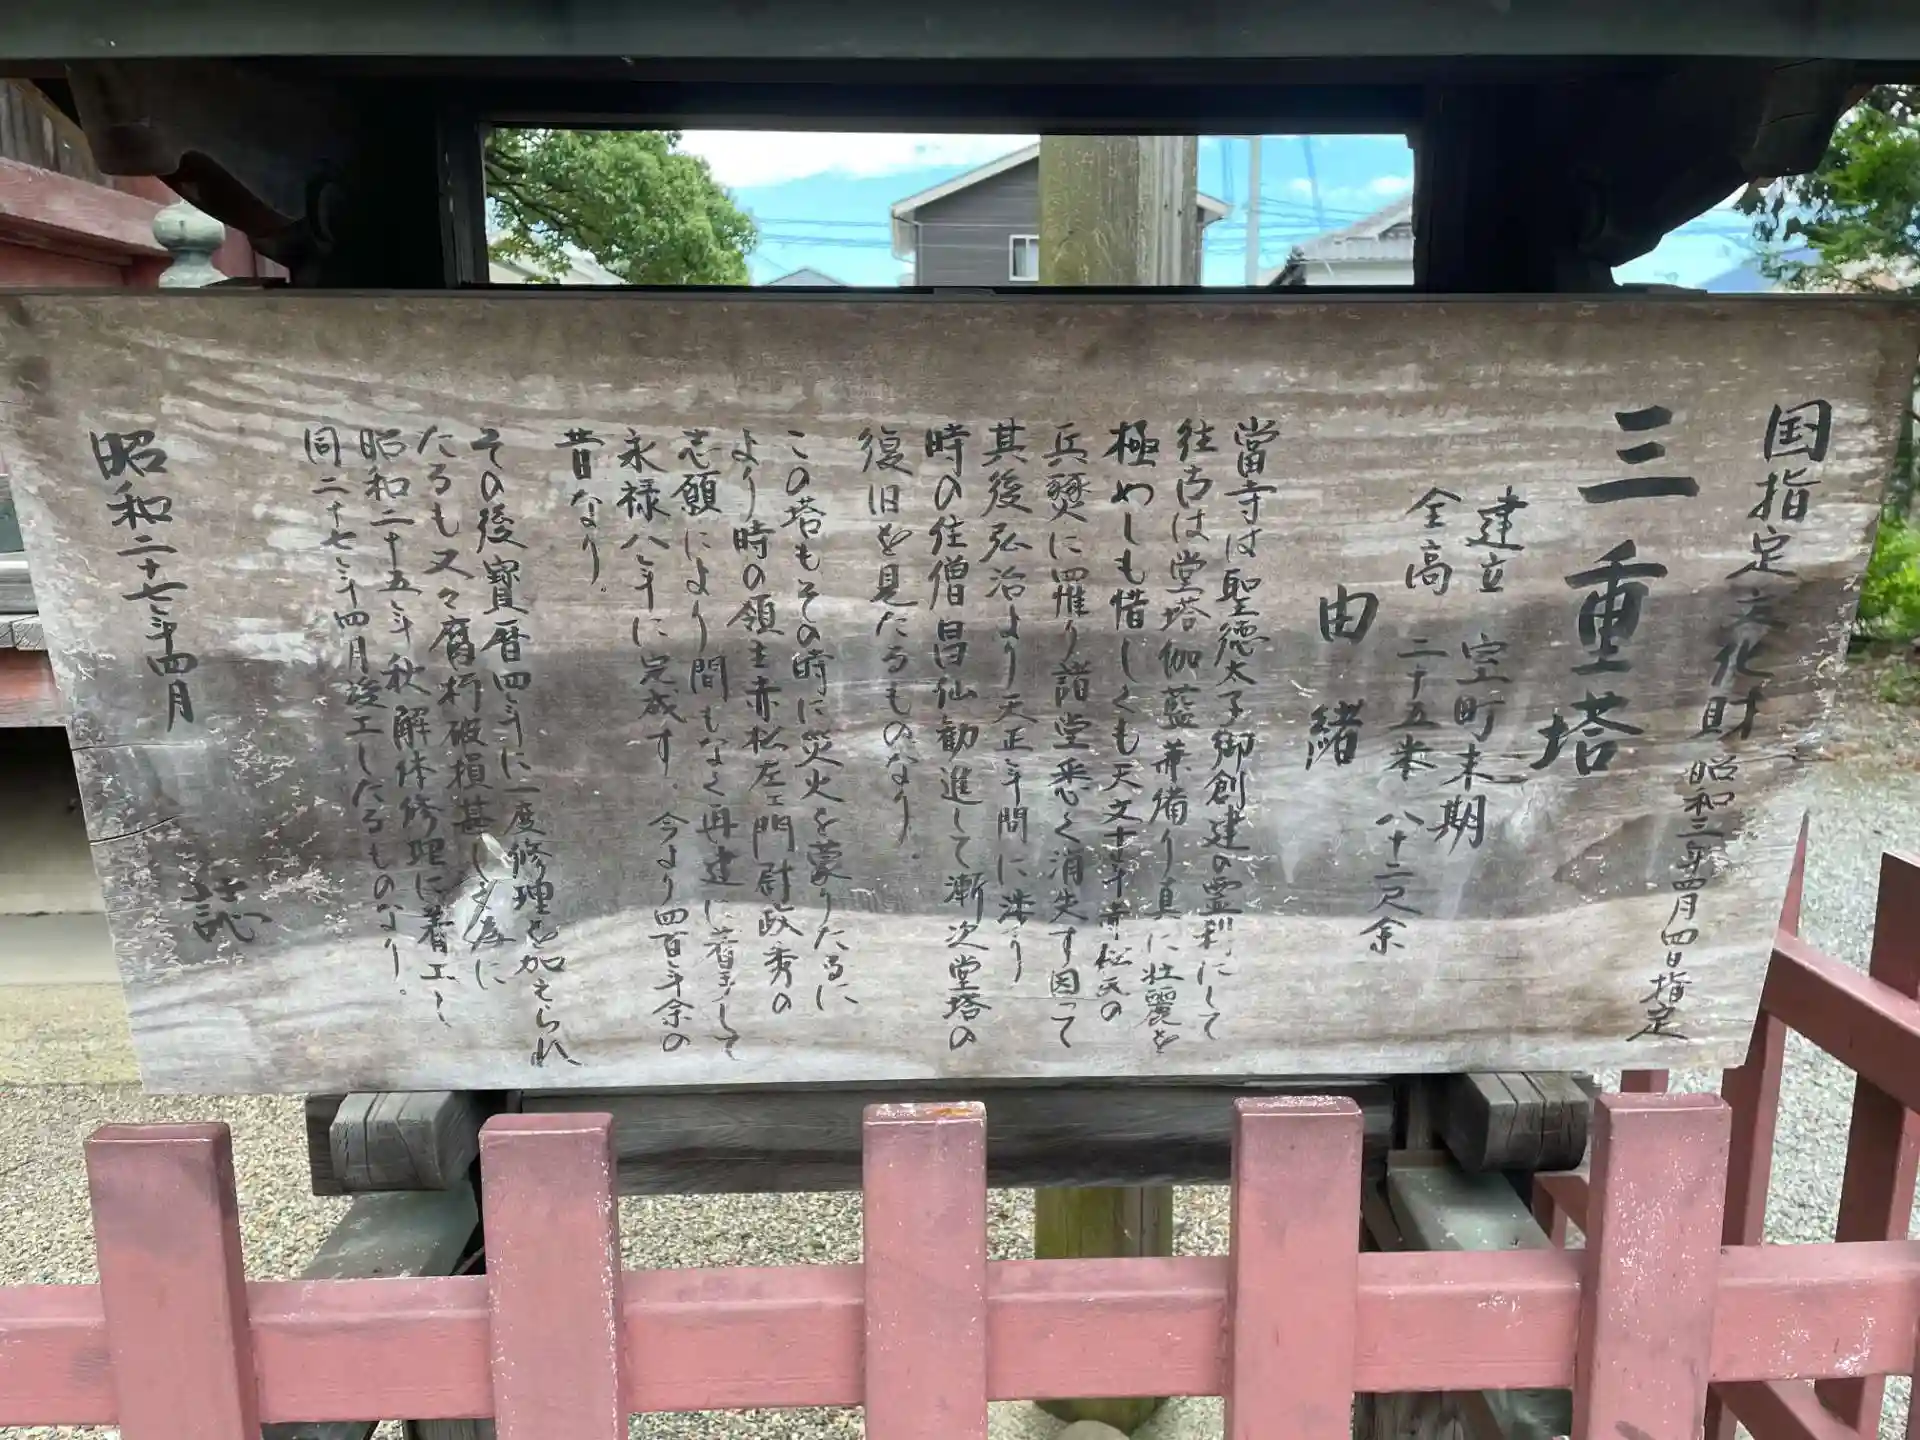 国指定文化財 昭和三年四月四日指定
三重塔
建立 室町末期
全高 二十五米 八十二尺余
由緒
當寺は聖徳太子御創建の霊刹にして
往古は堂塔伽藍兼備り真に壮麗を
極めしも惜しくも天文十年
兵燹に罹り諸堂悉く消失す因って
其後弘治より天正年間に渉り
時の住僧昌仙勧進して漸次堂塔の
復旧を見たるものなり。
この塔もその時に災火を蒙りたるに
より時の領主赤松左ェ門尉政秀の
志願により間もなく再建に着手して
永禄八年に完成す。今より四百年余の
昔なり。
その後寳暦四年に一度修理を加えられ
たるも又々腐朽破損甚しき為に
昭和二十五年秋解体修理に着工し
同二十七年四月竣工したるものなり。
昭和二十七年四月
誌